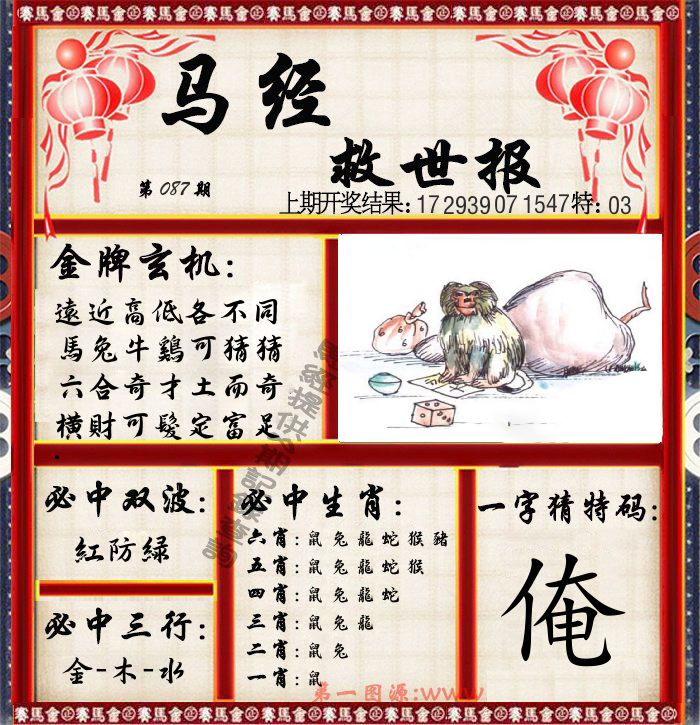 賽馬會
马经
救世报
第087期
上期开奖结果:172939071547特:03
金牌玄机:
遠近高低各不同
馬兔牛鷄可猜猜
六合奇才土而奇
横財可髮定富足
必中双波:
紅防緑
必中三行:
金-木-水
必中生肖:
六肖:鼠兔龍蛇猴豬
五肖:鼠兔龍蛇猴
四肖:鼠兔龍蛇
三肖:鼠兔龍
二肖:鼠兔
一肖:鼠
一字猜特码:
俺
第一图源:www